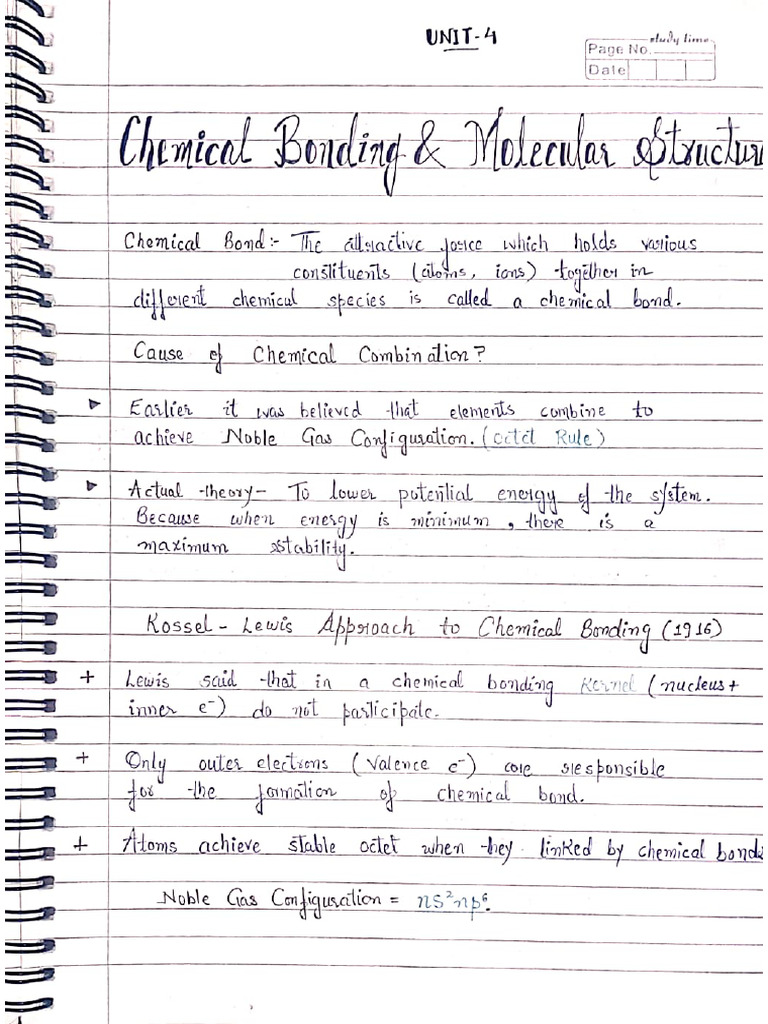 UNIT-4
study time
Page No.
Date
Chemical Bonding & Molecular Structure
Chemical Bond:- The attractive force which holds various
constituents (atoms, ions) together in
different chemical species is called a chemical bond.
Cause of Chemical Combination?
▷ Earlier it was believed that elements combine to
achieve Noble Gas Configuration. (octet Rule)
▷ Actual theory- To lower potential energy of the system.
Because when energy is minimum, there is a
maximum stability.
Kossel-Lewis Approach to Chemical Bonding (1916)
+ Lewis said that in a chemical bonding Kernel (nucleus+
inner e⁻) do not participate.
+ Only outer electrons (Valence e⁻) are responsible
for the formation of chemical bond.
+ Atoms achieve stable octet when they linked by chemical bonds
Noble Gas Configuration = ns²np⁶.